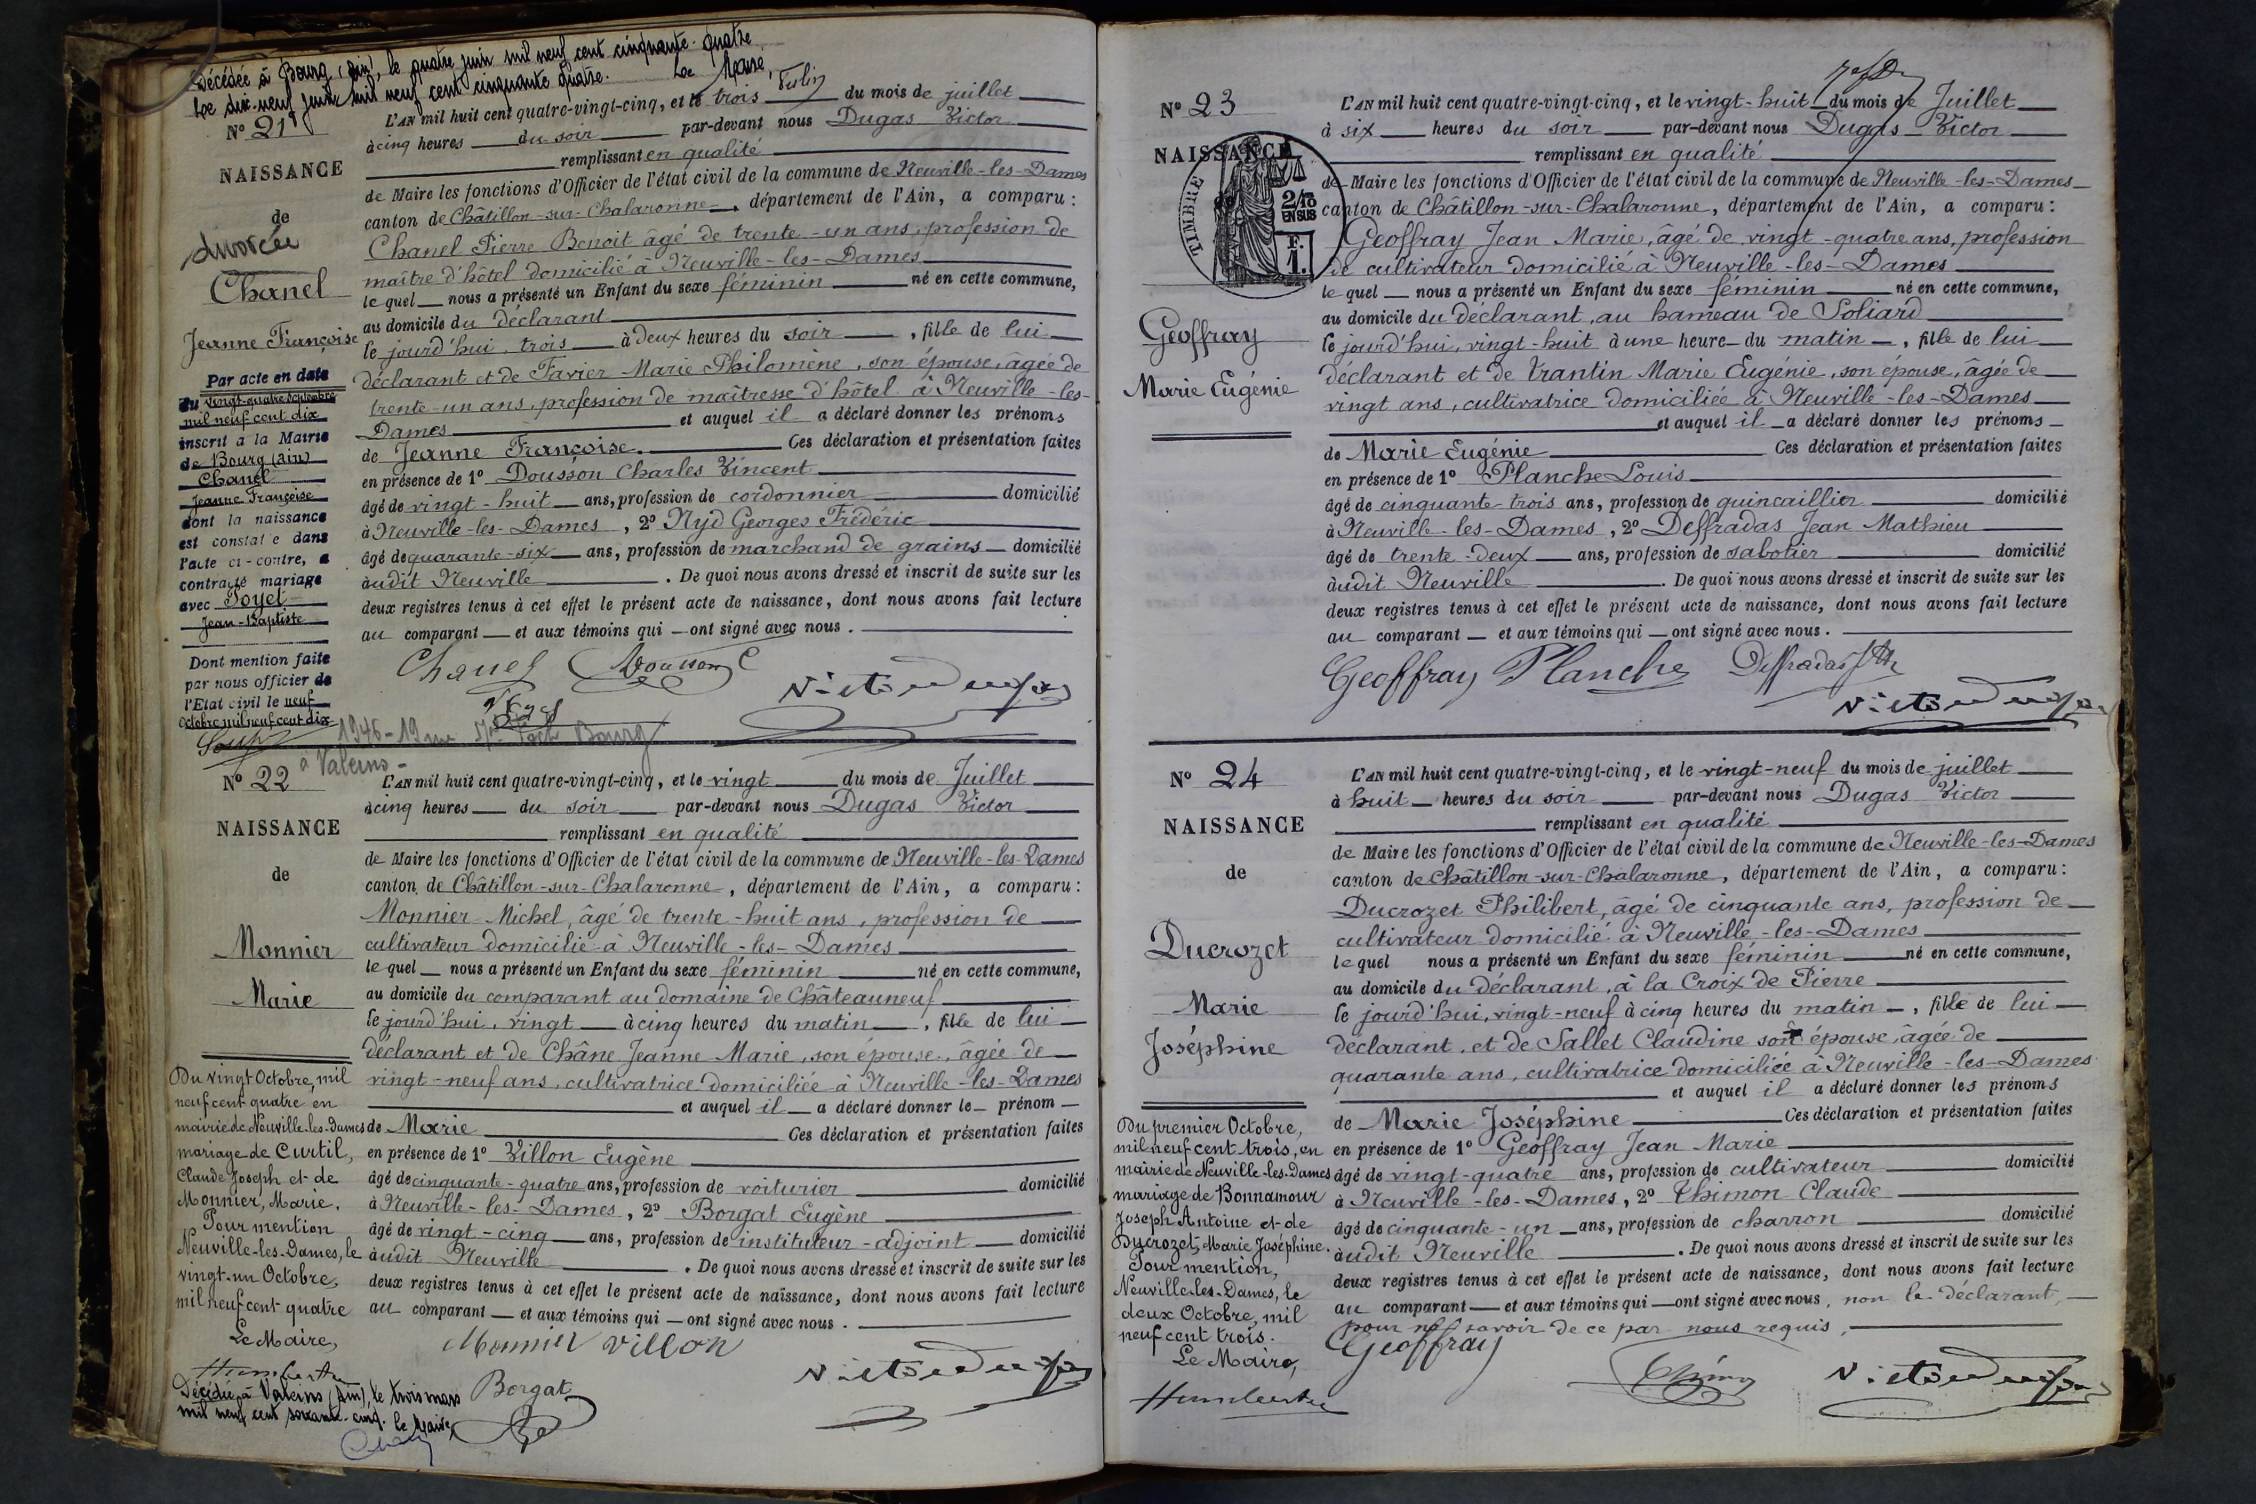 Décédée à Bourg (Ain), le quatre juin mil neuf cent cinquante-quatre
Le dix-neuf juin mil neuf cent cinquante quatre. Le Maire,
N° 21
NAISSANCE
de
divorcée
Chanel
Jeanne Françoise
Par acte en date
du vingt-quatre septembre
mil neuf cent dix
inscrit à la Mairie
de Bourg (Ain)
Chanel
Jeanne Françoise
dont la naissance
est constatée dans
l'acte ci-contre, a
contracté mariage
avec Poyet
Jean-Baptiste
Dont mention faite
par nous officier de
l'Etat civil le neuf
Octobre mil neuf cent dix
L'AN mil huit cent quatre-vingt-cinq, et le trois du mois de juillet
à cinq heures du soir par-devant nous Dugas Victor
remplissant en qualité
de Maire les fonctions d'Officier de l'état civil de la commune de Neuville-les-Dames
canton de Châtillon-sur-Chalaronne, département de l'Ain, a comparu :
Chanel Pierre Benoit âgé de trente-un ans, profession de
maître d'hôtel domicilié à Neuville-les-Dames
le quel nous a présenté un Enfant du sexe féminin né en cette commune,
au domicile du déclarant
le jourd'hui, trois à deux heures du soir, fille de lui
déclarant et de Favier Marie Philomène, son épouse, âgée de
trente-un ans, profession de maîtresse d'hôtel à Neuville-les-
Dames et auquel il a déclaré donner les prénoms
de Jeanne Françoise. Ces déclaration et présentation faites
en présence de 1° Dousson Charles Vincent
âgé de vingt-huit ans, profession de cordonnier domicilié
à Neuville-les-Dames, 2° Nyd Georges Frédéric
âgé de quarante-six ans, profession de marchand de grains domicilié
àudit Neuville. De quoi nous avons dressé et inscrit de suite sur les
deux registres tenus à cet effet le présent acte de naissance, dont nous avons fait lecture
au comparant et aux témoins qui ont signé avec nous.
Chanel Dousson C
Victor Dugas
N° 22
NAISSANCE
de
Monnier
Marie
Du vingt Octobre, mil
neuf cent quatre en
mairie de Neuville-les-Dames
mariage de Curtil,
Claude Joseph et de
Monnier, Marie.
Pour mention
Neuville-les-Dames, le
vingt-un Octobre,
mil neuf cent quatre
Le Maire,
Décédée à Valeins (Ain), le trois mars
mil neuf cent soixante-cinq. Le Maire,
L'AN mil huit cent quatre-vingt-cinq, et le vingt du mois de Juillet
à cinq heures du soir par-devant nous Dugas Victor
remplissant en qualité
de Maire les fonctions d'Officier de l'état civil de la commune de Neuville-les-Dames
canton de Châtillon-sur-Chalaronne, département de l'Ain, a comparu :
Monnier Michel, âgé de trente-huit ans, profession de
cultivateur domicilié à Neuville-les-Dames
le quel nous a présenté un Enfant du sexe féminin né en cette commune,
au domicile du comparant au domaine de Châteauneuf
le jourd'hui, vingt à cinq heures du matin, fille de lui
déclarant et de Châne Jeanne Marie, son épouse, âgée de
vingt-neuf ans, cultivatrice domiciliée à Neuville-les-Dames
et auquel il a déclaré donner le prénom
de Marie Ces déclaration et présentation faites
en présence de 1° Villon Eugène
âgé de cinquante-quatre ans, profession de voiturier domicilié
à Neuville-les-Dames, 2° Borgat Eugène
âgé de vingt-cinq ans, profession de instituteur-adjoint domicilié
àudit Neuville. De quoi nous avons dressé et inscrit de suite sur les
deux registres tenus à cet effet le présent acte de naissance, dont nous avons fait lecture
au comparant et aux témoins qui ont signé avec nous.
Monnier Villon
Borgat
Victor Dugas
N° 23
NAISSANCE
TIMBRE
2/10
EN SUS
F.
1.
Geoffray
Marie Eugénie
L'AN mil huit cent quatre-vingt-cinq, et le vingt-huit du mois de Juillet
à six heures du soir par-devant nous Dugas Victor
remplissant en qualité
de Maire les fonctions d'Officier de l'état civil de la commune de Neuville-les-Dames
canton de Châtillon-sur-Chalaronne, département de l'Ain, a comparu :
Geoffray Jean Marie, âgé de vingt-quatre ans, profession
de cultivateur domicilié à Neuville-les-Dames
le quel nous a présenté un Enfant du sexe féminin né en cette commune,
au domicile du déclarant, au hameau de Soliard
le jourd'hui, vingt-huit à une heure du matin, fille de lui
déclarant et de Trantin Marie Eugénie, son épouse, âgée de
vingt ans, cultivatrice domiciliée à Neuville-les-Dames
et auquel il a déclaré donner les prénoms
de Marie Eugénie Ces déclaration et présentation faites
en présence de 1° Planche Louis
âgé de cinquante-trois ans, profession de quincaillier domicilié
à Neuville-les-Dames, 2° Deffradas Jean Mathieu
âgé de trente-deux ans, profession de sabotier domicilié
àudit Neuville. De quoi nous avons dressé et inscrit de suite sur les
deux registres tenus à cet effet le présent acte de naissance, dont nous avons fait lecture
au comparant et aux témoins qui ont signé avec nous.
Geoffray Planche Deffradas
Victor Dugas
N° 24
NAISSANCE
de
Ducrozet
Marie
Joséphine
Du premier Octobre,
mil neuf cent trois, en
mairie de Neuville-les-Dames
mariage de Bonnamour
Joseph Antoine et de
Ducrozet, Marie Joséphine.
Pour mention,
Neuville-les-Dames, le
deux Octobre, mil
neuf cent trois.
Le Maire,
L'AN mil huit cent quatre-vingt-cinq, et le vingt-neuf du mois de juillet
à huit heures du soir par-devant nous Dugas Victor
remplissant en qualité
de Maire les fonctions d'Officier de l'état civil de la commune de Neuville-les-Dames
canton de Châtillon-sur-Chalaronne, département de l'Ain, a comparu :
Ducrozet Philibert, âgé de cinquante ans, profession de
cultivateur domicilié à Neuville-les-Dames
le quel nous a présenté un Enfant du sexe féminin né en cette commune,
au domicile du déclarant, à la Croix de Pierre
le jourd'hui, vingt-neuf à cinq heures du matin, fille de lui
déclarant, et de Sallet Claudine son épouse, âgée de
quarante ans, cultivatrice domiciliée à Neuville-les-Dames
et auquel il a déclaré donner les prénoms
de Marie Joséphine Ces déclaration et présentation faites
en présence de 1° Geoffray Jean Marie
âgé de vingt-quatre ans, profession de cultivateur domicilié
à Neuville-les-Dames, 2° Thimon Claude
âgé de cinquante-un ans, profession de charron domicilié
àudit Neuville. De quoi nous avons dressé et inscrit de suite sur les
deux registres tenus à cet effet le présent acte de naissance, dont nous avons fait lecture
au comparant et aux témoins qui ont signé avec nous, non le déclarant,
pour ne savoir de ce par nous requis,
Geoffray
Victor Dugas